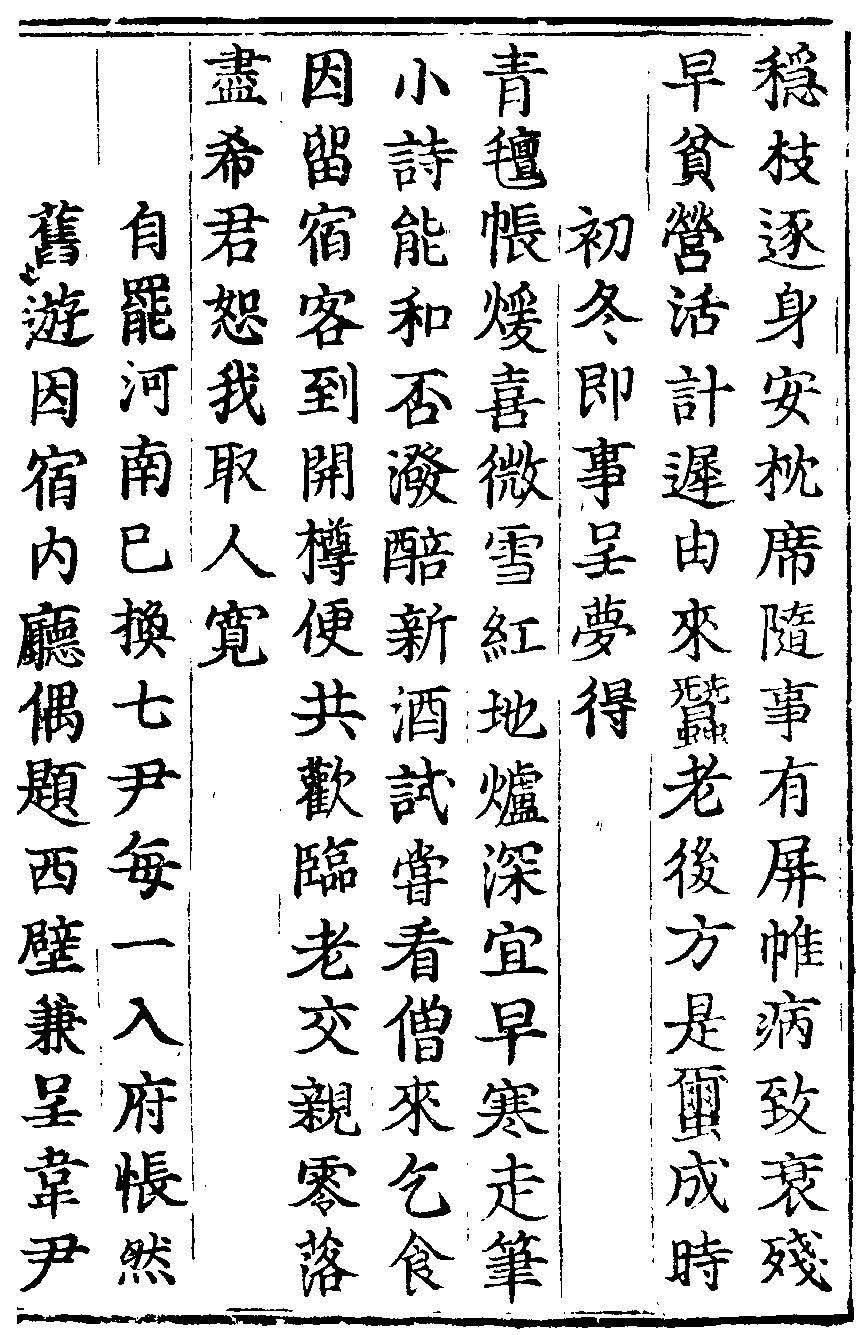 穏枝逐身安枕席隨事有屏帷病致衰殘
早貧營活計遲由來蠶老後方是蠒成時
初冬即事呈夢得
青氊帳煖喜微雪紅地爐深宜早寒走筆
小詩能和否潑醅新酒試甞看僧來乞食
因留宿客到開樽便共歡臨老交親零落
盡希君恕我取人寬
自罷河南已換七尹每一入府悵然
舊遊因宿内廳偶題西壁兼呈韋尹